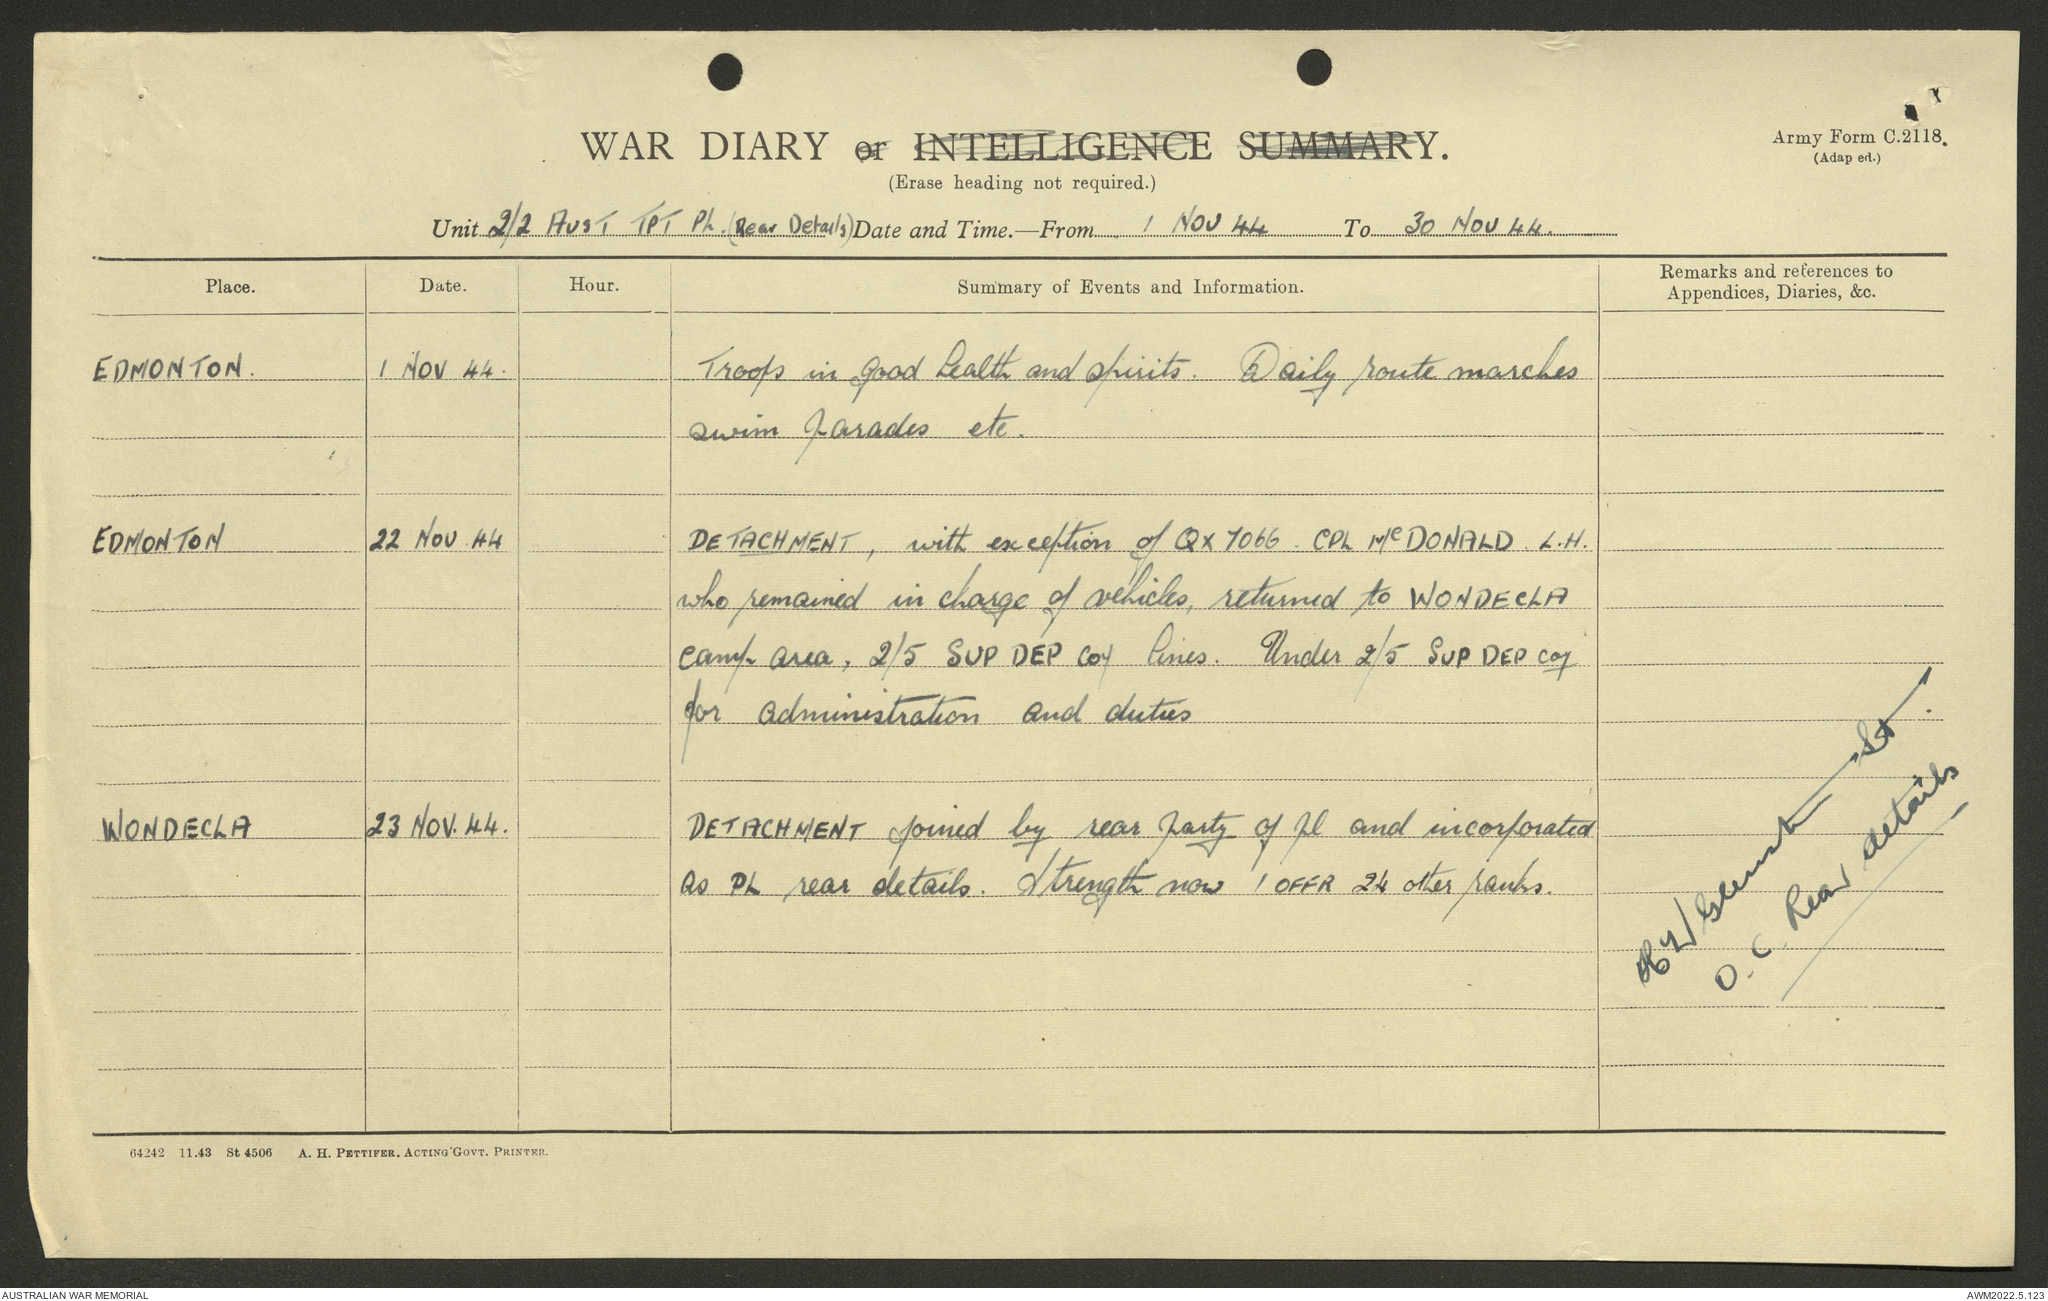 WAR DIARY or INTELLIGENCE SUMMARY.
(Erase heading not required.)
Army Form C.2118.
(Adap ed.)
Unit 2/2 AUST TPT PL. (Rear Details) Date and Time.—From 1 NOV 44 To 30 NOV 44.
Place. Date. Hour. Summary of Events and Information. Remarks and references to
Appendices, Diaries, &c.
EDMONTON. 1 NOV 44. Troops in good health and spirits. Daily route marches
swim parades etc.
EDMONTON 22 NOV 44 DETACHMENT, with exception of QX 7066 CPL McDONALD L.H.
who remained in charge of vehicles, returned to WONDECLA
camp area, 2/5 SUP DEP COY lines. Under 2/5 SUP DEP COY
for administration and duties
WONDECLA 23 NOV. 44. DETACHMENT joined by rear party of pl and incorporated
as PL rear details. Strength now 1 OFFR 24 other ranks.
Lt.
O.C. Rear details
64242 11.43 St 4506 A. H. PETTIFER, ACTING GOVT. PRINTER.
AUSTRALIAN WAR MEMORIAL
AWM2022.5.123